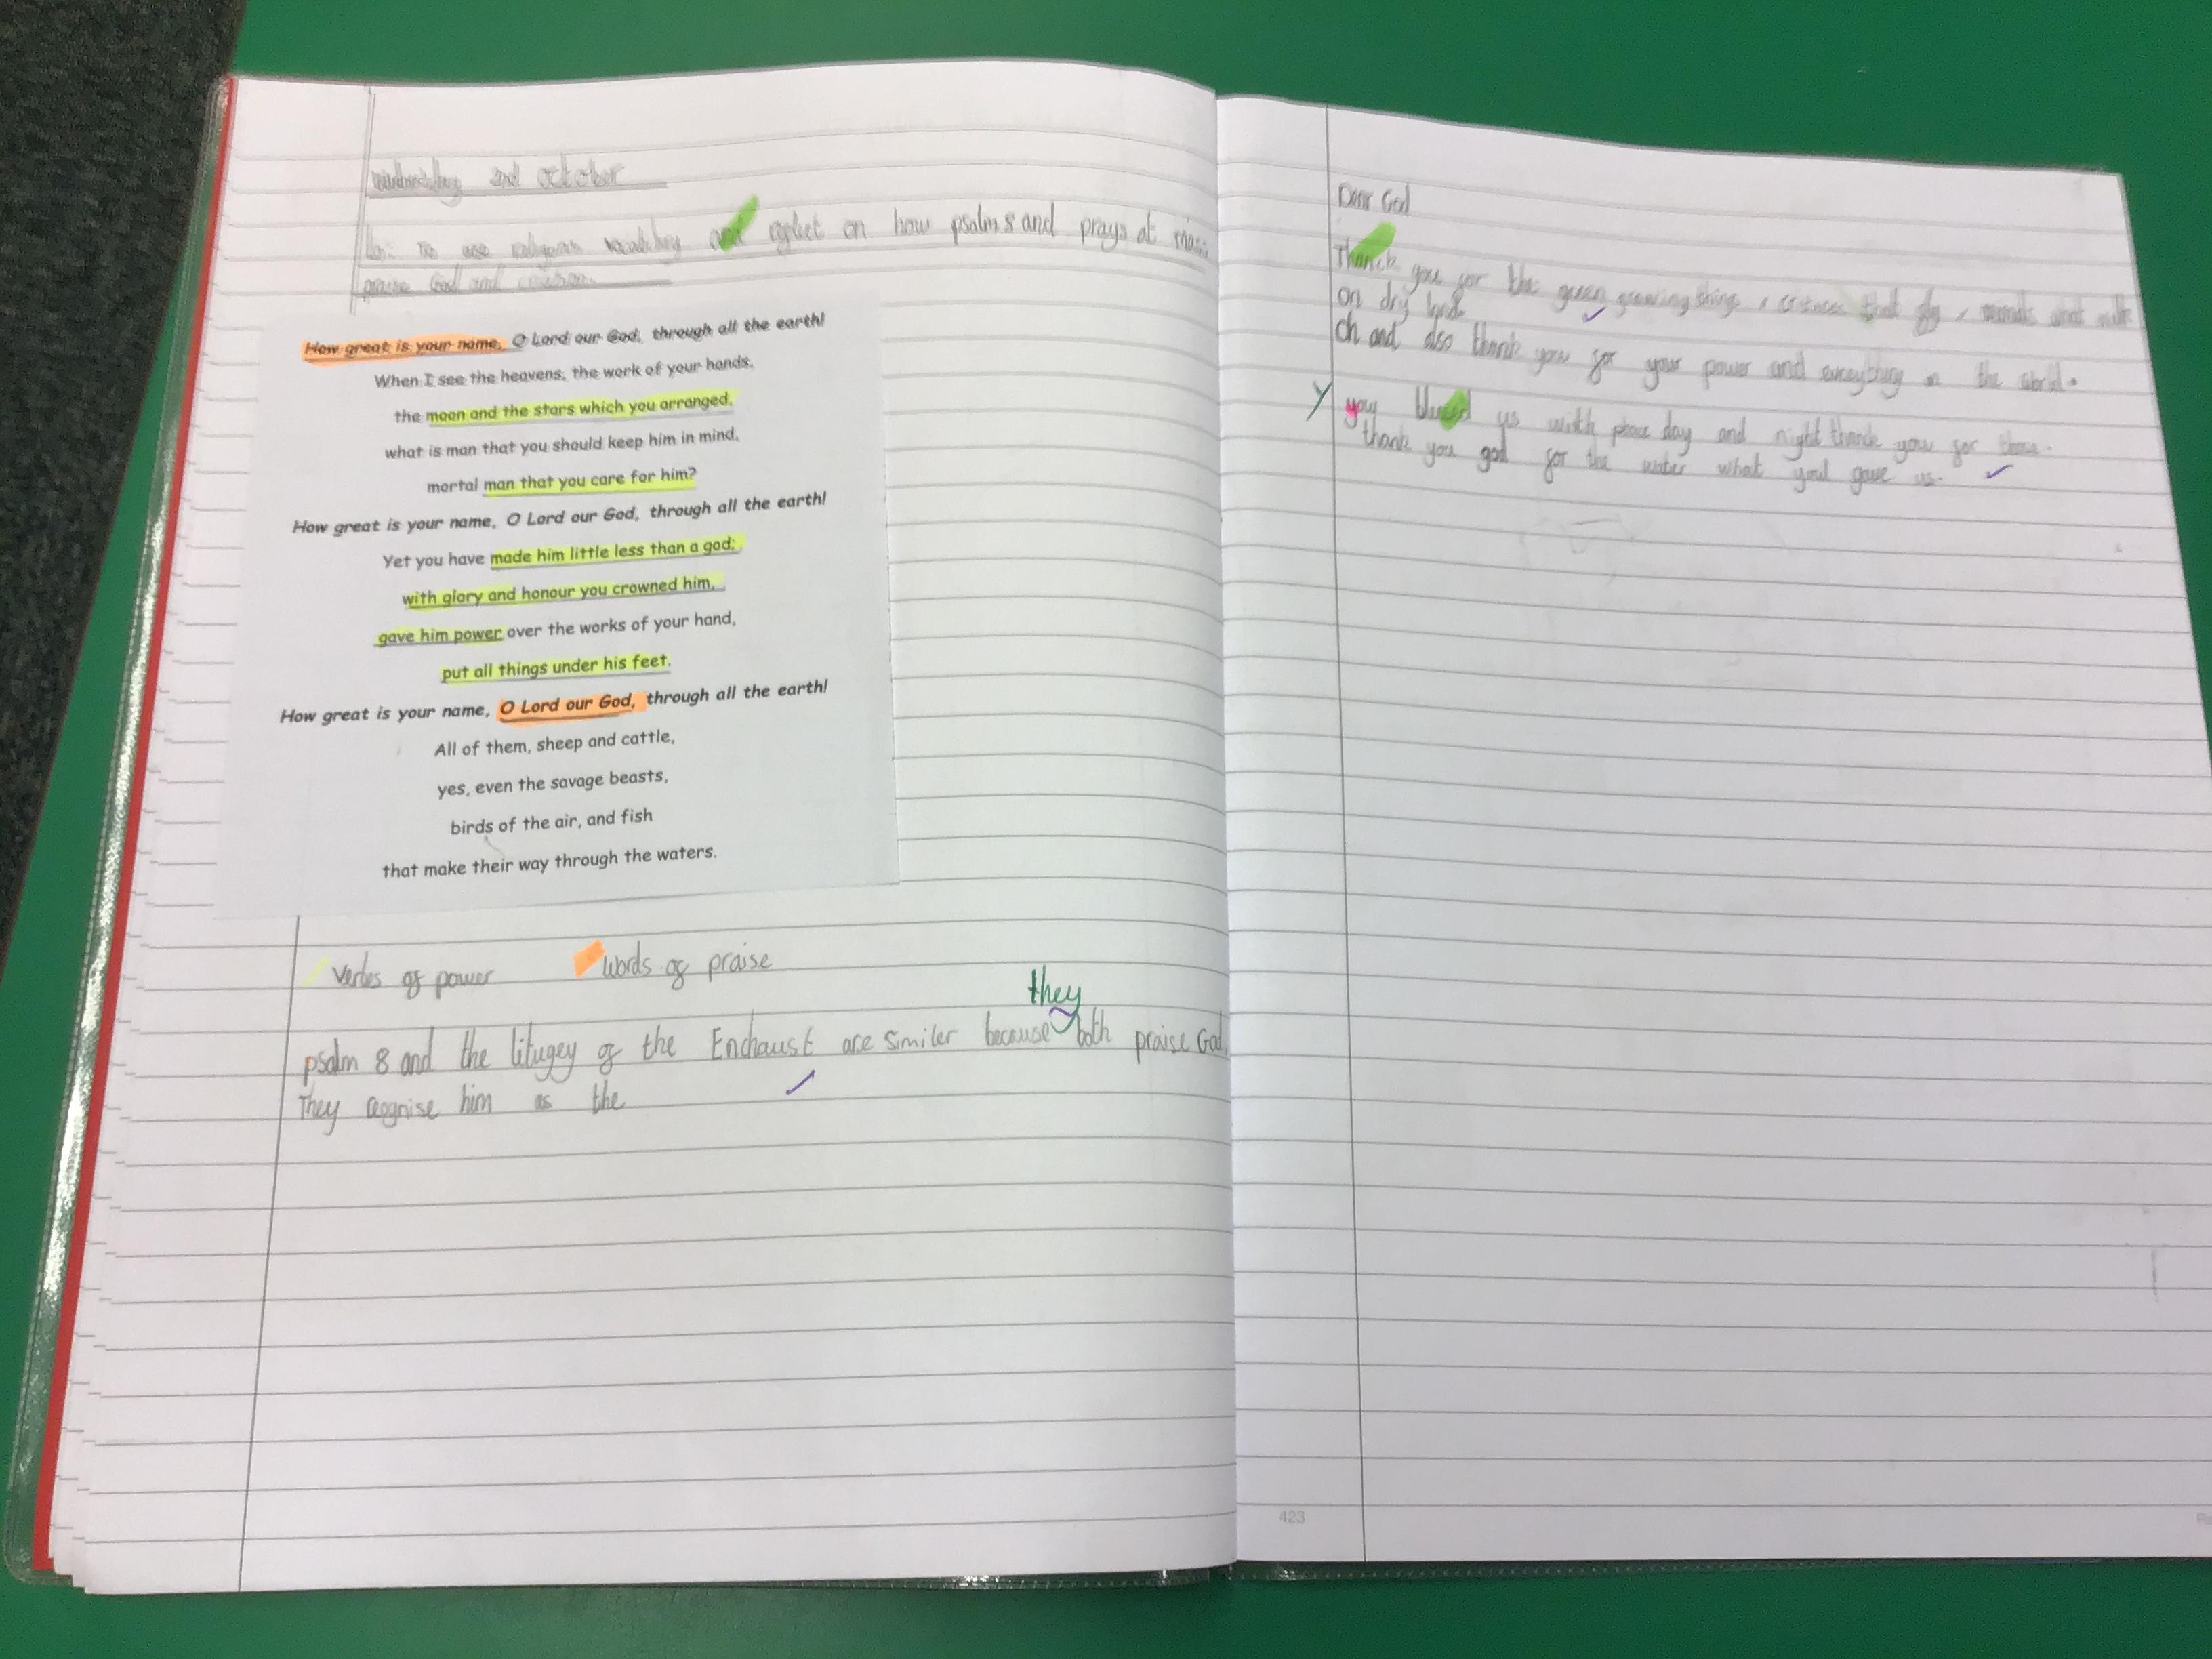 2nd October
Lo: To use religious vocabulary and reflect on how psalm 8 and prays at mass
praise God and
How great is your name, O Lord our God, through all the earth!
When I see the heavens, the work of your hands,
the moon and the stars which you arranged,
what is man that you should keep him in mind,
mortal man that you care for him?
How great is your name, O Lord our God, through all the earth!
Yet you have made him little less than a god;
with glory and honour you crowned him,
gave him power over the works of your hand,
put all things under his feet.
How great is your name, O Lord our God, through all the earth!
All of them, sheep and cattle,
yes, even the savage beasts,
birds of the air, and fish
that make their way through the waters.
Verbs of power
Words of praise
they
psalm 8 and the litugey of the Enchaust are similer because both praise God.
They regnise him as the
Dear God
Thanck you for the green growing things, that fly,
on dry land.
Oh and also thank you for your power and everything in the world.
Y
you blessed us with peace day and night thanck you for those.
thank you god for the water what you gave us.
423